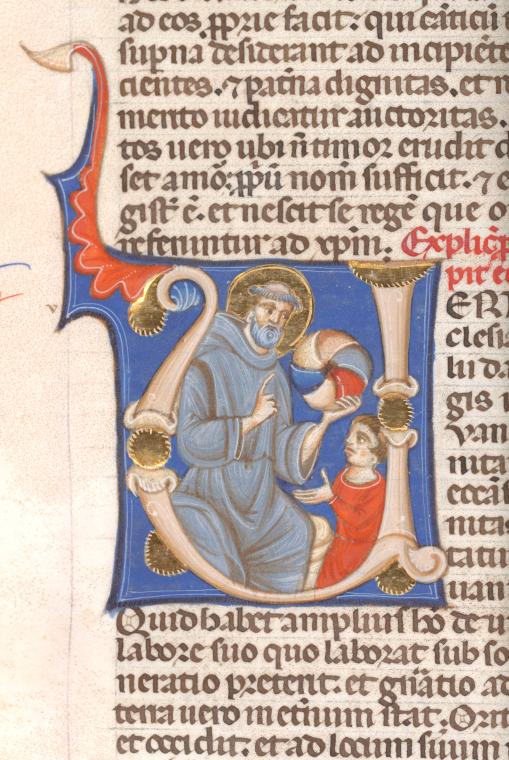 ad eos ꝓprie facit: qui cātici
supna desiderant ad incipiēte
cientes. ⁊ patna dignitas. et n
mento iudicatur auctoritas.
tos uero ubi ñ timor erudit
set amor: ppu nom sufficit. ⁊
gist ē. et nescit se regē que o
referuntur ad xpm. Explic
pit
ERB
clesi
lii da
gis
van
nita
eccās
nitas
tatū
uani
Quid habet amplius ho de u
labore suo quo laborat sub so
neratio preterit. et gñatio ad
terra uero in etnum stat. Orit
et occidit. et ad locum suum